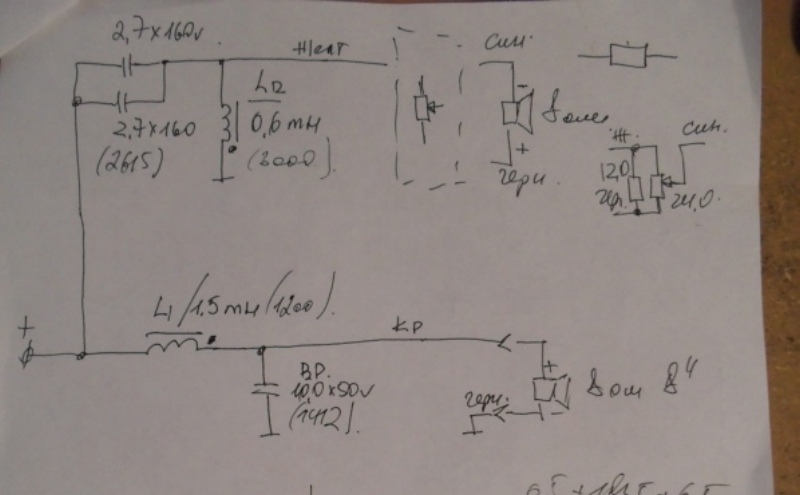 2,7×160v
Жёлт
син.
L2
0,6 mH
(2000).
2,7×160
(2615)
8 ом
-
+
черн.
Ж.
син.
12,0
чер.
24,0.
L1/1.5 mH (1200).
+
КР
BP.
10,0×50v
(1412).
+
-
черн.
8 ом 8"